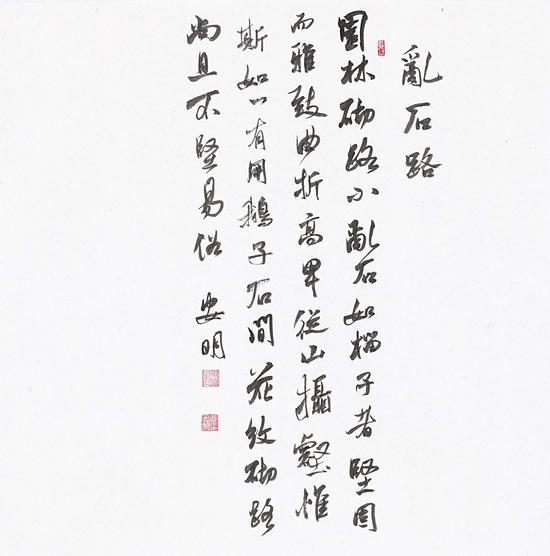 亂石路
園林砌路小亂石如榴子者堅固
而雅致曲折高卑從山攝壑惟
斯如一有用鵝子石間花紋砌路
尚且不堅易俗 安明